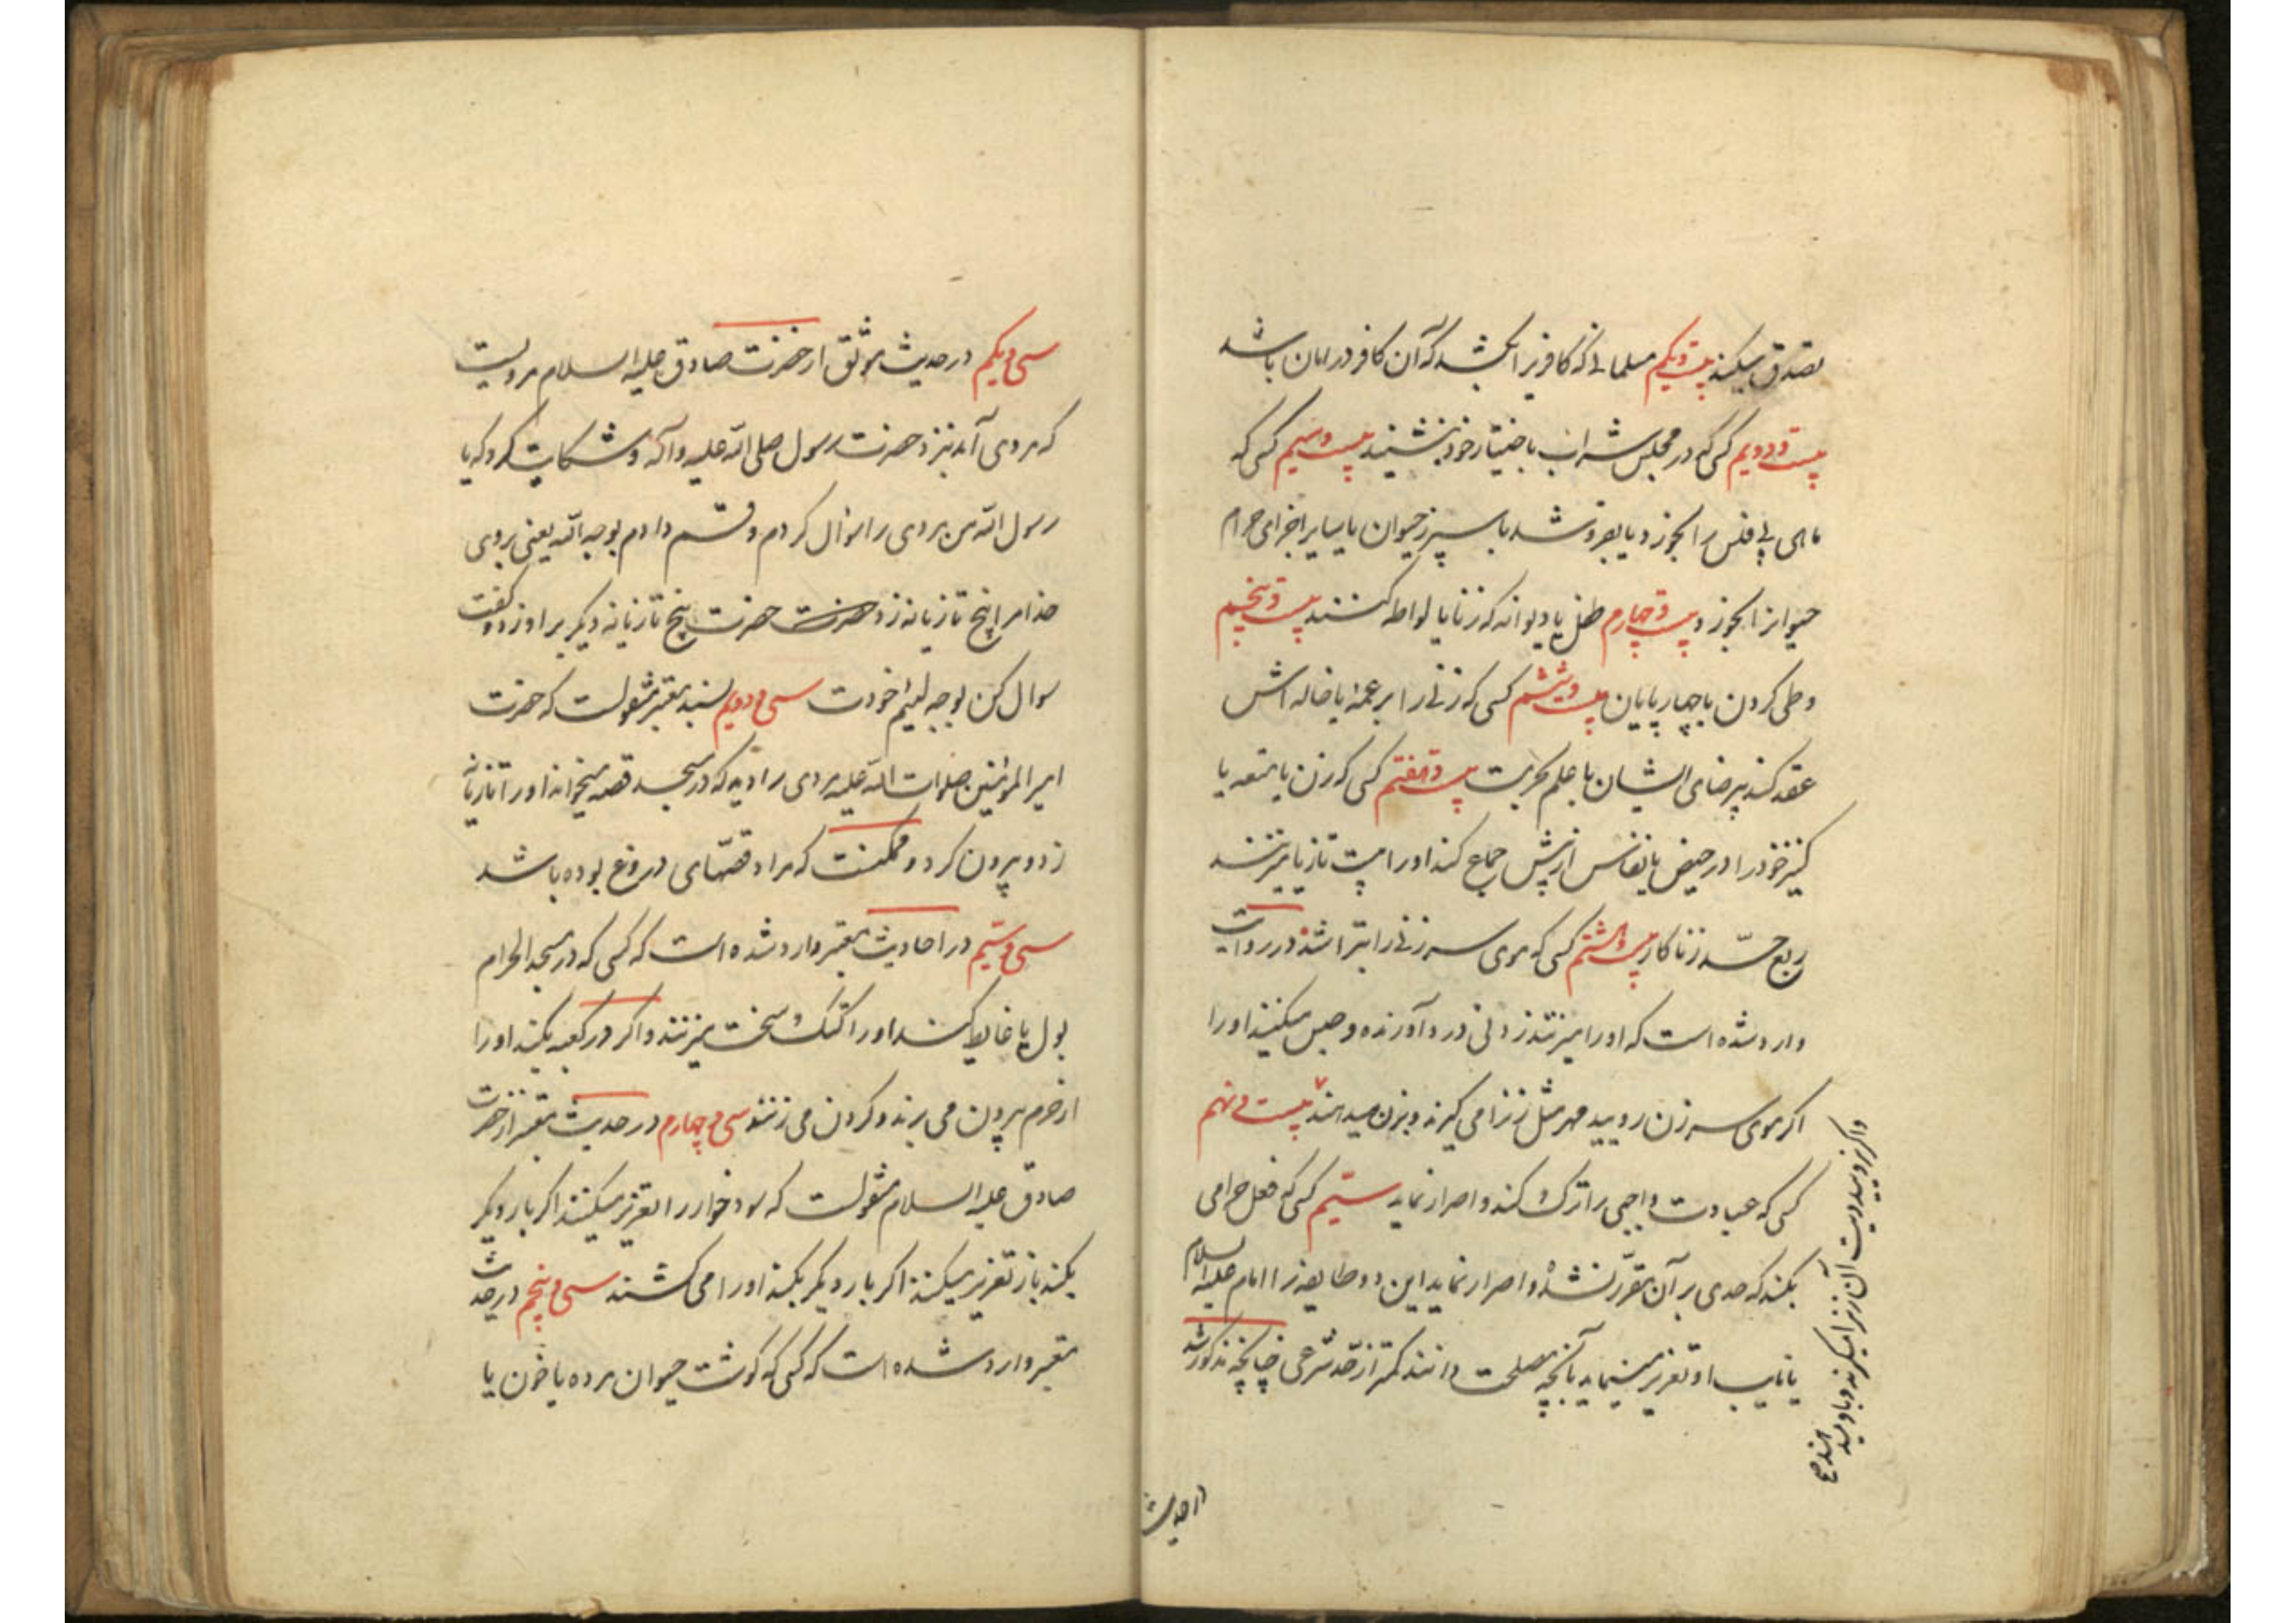 تصدق میکند بیست و یکم مسلمانی که کافریرا بکشد که آن کافر در امان باشد
بیست و دویم کسی که در مجلس شراب باختیار خود بنشیند بیست و سیم کسی که
ماهی بی فلس را بخورد و یا بفروشد یا سپرز حیوان یا سایر اجزای حرام
حیوانرا بخورد بیست و چهارم طفل یا دیوانه که زنا یا لواطه کنند بیست و پنجم
وطی کردن با چهارپایان بیست و ششم کسی که زنی را بر عمه یا خاله اش
عقد کند بیرضای ایشان با علم بحرمت بیست و هفتم کسی که زن یا متعه یا
کنیز خود را در حیض یا نفاس از پیش جماع کند او را بیست تازیانه میزنند
ربع حد زناکار بیست و هشتم کسی که موی سر زنی را بتراشد در روایت
وارد شده است که او را میزنند زدنی درد آورنده و حبس میکنند او را
اگر موی سر زن رویید مهر مثل زنرا می گیرند و بزن میدهند بیست و نهم
کسی که عبادت واجبی را ترک کند و اصرار نماید سیم کسی که فعل حرامی
بکند که حدی بر آن مقرر نشده و اصرار نماید این دو طایفه را امام علیه السلام
یا نایب او تعزیر مینماید بآنچه مصلحت دانند کمتر از حد شرعی چنانچه مذکور شد
واگر نرویید دیت آن زنرا میگیرند و باو میدهند صح
در حدیث
سی و یکم در حدیث موثق از حضرت صادق علیه السلام مرویست
که مردی آمد نزد حضرت رسول صلی الله علیه وآله و شکایت کرد که یا
رسول الله من مردی را سوال کردم و قسم دادم بوجه الله یعنی بروی
خدا مرا پنج تازیانه زد حضرت حضرت پنج تازیانه دیگر بر او زد و گفت
سوال کن بوجه لئیم خودت سی و دویم بسند معتبر منقولست که حضرت
امیر المؤمنین صلوات الله علیه مردی را دید که در مسجد قصه میخواند او را تازیانه
زد و بیرون کرد و ممکنست که مراد قصهای دروغ بوده باشد
سی و سیم در احادیث معتبر وارد شده است که کسی که در مسجد الحرام
بول یا غایط کند او را کتک سخت میزنند و اگر در کعبه بکند او را
از حرم بیرون می برند و گردن می زنند سی و چهارم در حدیث معتبر از حضرت
صادق علیه السلام منقولست که سود خوار را تعزیر میکنند اگر بار دیگر
بکند باز تعزیر میکنند اگر بار دیگر بکند او را می کشند سی و پنجم در حدیث
معتبر وارد شده است که کسی که گوشت حیوان مرده یا خون یا